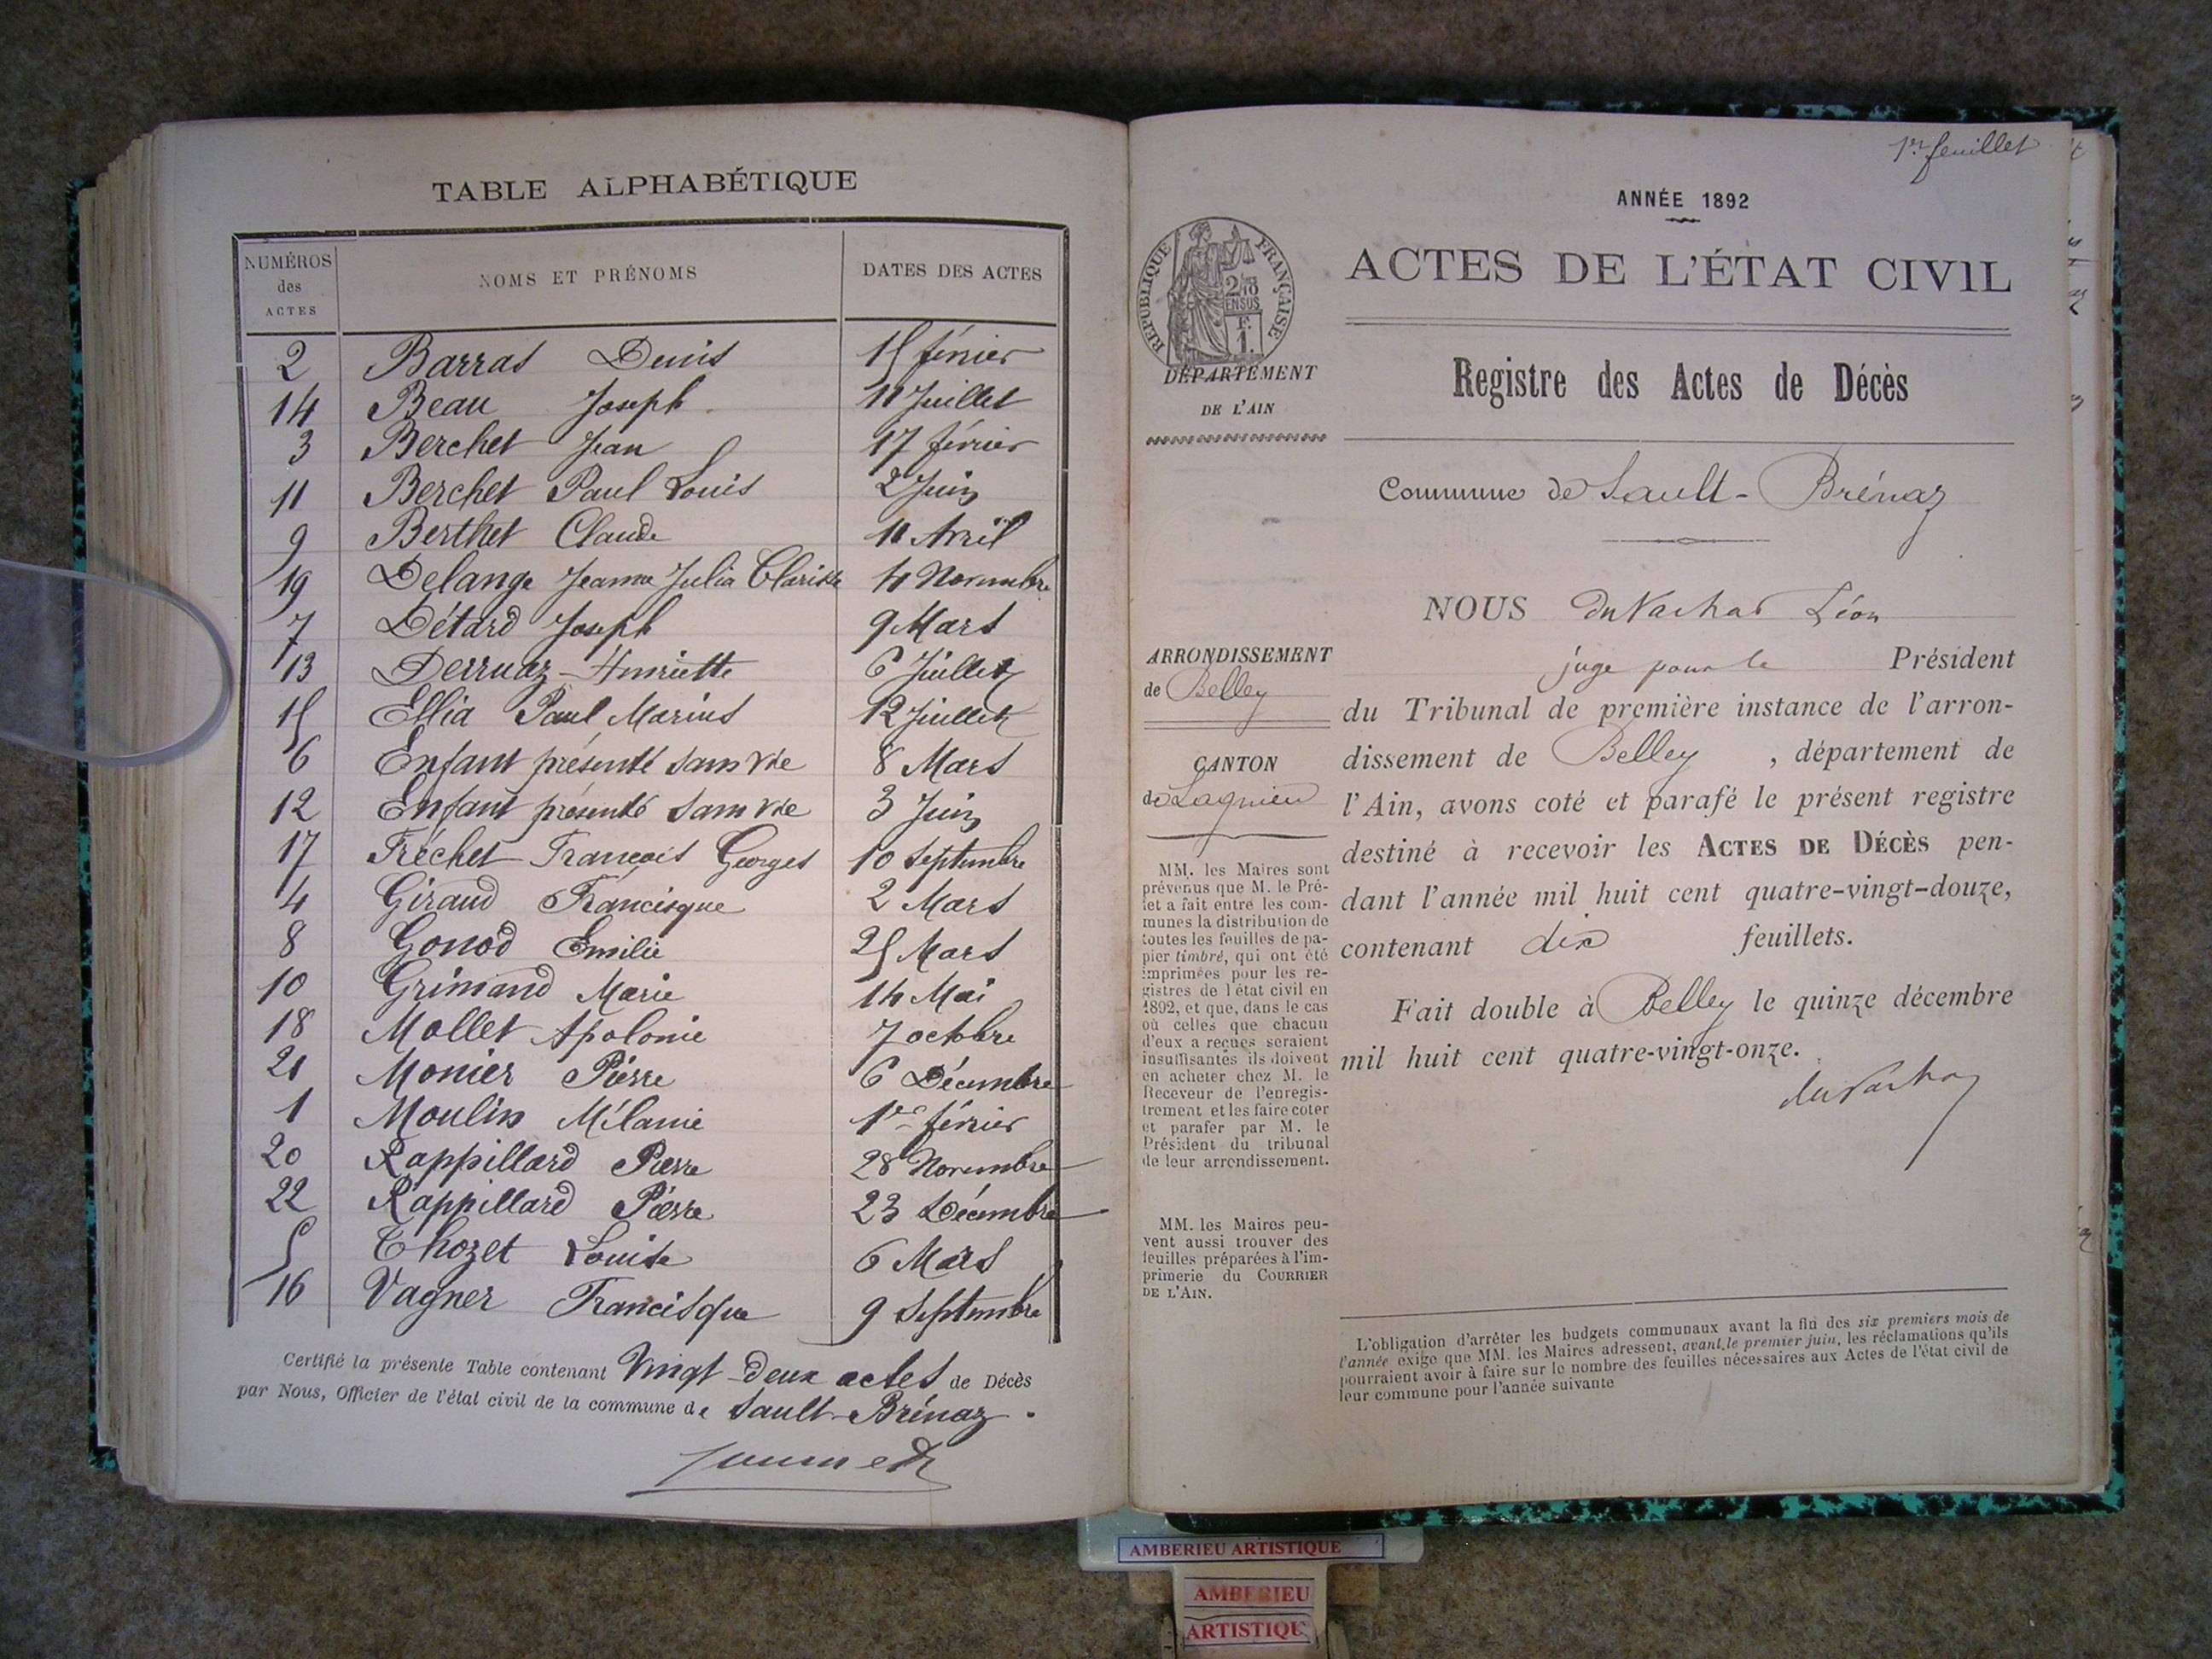 TABLE ALPHABÉTIQUE
NUMÉROS des ACTES NOMS ET PRÉNOMS DATES DES ACTES
2 Barras Denis 15 février
14 Beau Joseph 11 Juillet
3 Berchet Jean 17 février
11 Berchet Paul Louis 2 Juin
9 Berthet Claude 11 Avril
19 Delange Jeanne Julia Clarisse 4 Novembre
7 Détard Joseph 9 Mars
13 Derruaz Henriette 6 Juillet
15 Ellia Paul Marius 12 Juillet
6 Enfant présenté sans vie 8 Mars
12 Enfant présenté sans vie 3 Juin
17 Fréchet François Georges 10 Septembre
4 Giraud Francisque 2 Mars
8 Gonod Emilie 25 Mars
10 Grimand Marie 14 Mai
18 Mollet Apolonie 7 octobre
21 Monier Pierre 6 Décembre
1 Moulin Mélanie 1er février
20 Rappillard Pierre 28 Novembre
22 Rappillard Pierre 23 Décembre
5 Thozet Louise 6 Mars
16 Vagner Francisque 9 Septembre
Certifié la présente Table contenant Vingt-deux actes de Décès
par Nous, Officier de l'état civil de la commune de Sault-Brénaz.
1er feuillet
ANNÉE 1892
ACTES DE L'ÉTAT CIVIL
RÉPUBLIQUE FRANÇAISE
2/10 EN SUS
F. 1.
DÉPARTEMENT
DE L'AIN
Registre des Actes de Décès
Commune de Sault-Brénaz
NOUS Du Vachat Léon
juge pour le Président
du Tribunal de première instance de l'arron-
dissement de Belley, département de
l'Ain, avons coté et parafé le présent registre
destiné à recevoir les ACTES DE DÉCÈS pen-
dant l'année mil huit cent quatre-vingt-douze,
contenant dix feuillets.
Fait double à Belley le quinze décembre
mil huit cent quatre-vingt-onze.
du Vachat
ARRONDISSEMENT
de Belley
CANTON
de Lagnieu
MM. les Maires sont
prévenus que M. le Pré-
fet a fait entre les com-
munes la distribution de
toutes les feuilles de pa-
pier timbré, qui ont été
imprimées pour les re-
gistres de l'état civil en
1892, et que, dans le cas
où celles que chacun
d'eux a reçues seraient
insuffisantes ils doivent
en acheter chez M. le
Receveur de l'enregis-
trement et les faire coter
et parafer par M. le
Président du tribunal
de leur arrondissement.
MM. les Maires peu-
vent aussi trouver des
feuilles préparées à l'im-
primerie du COURRIER
DE L'AIN.
L'obligation d'arrêter les budgets communaux avant la fin des six premiers mois de
l'année exige que MM. les Maires adressent, avant le premier juin, les réclamations qu'ils
pourraient avoir à faire sur le nombre des feuilles nécessaires aux Actes de l'état civil de
leur commune pour l'année suivante
AMBERIEU ARTISTIQUE
AMBERIEU
ARTISTIQU